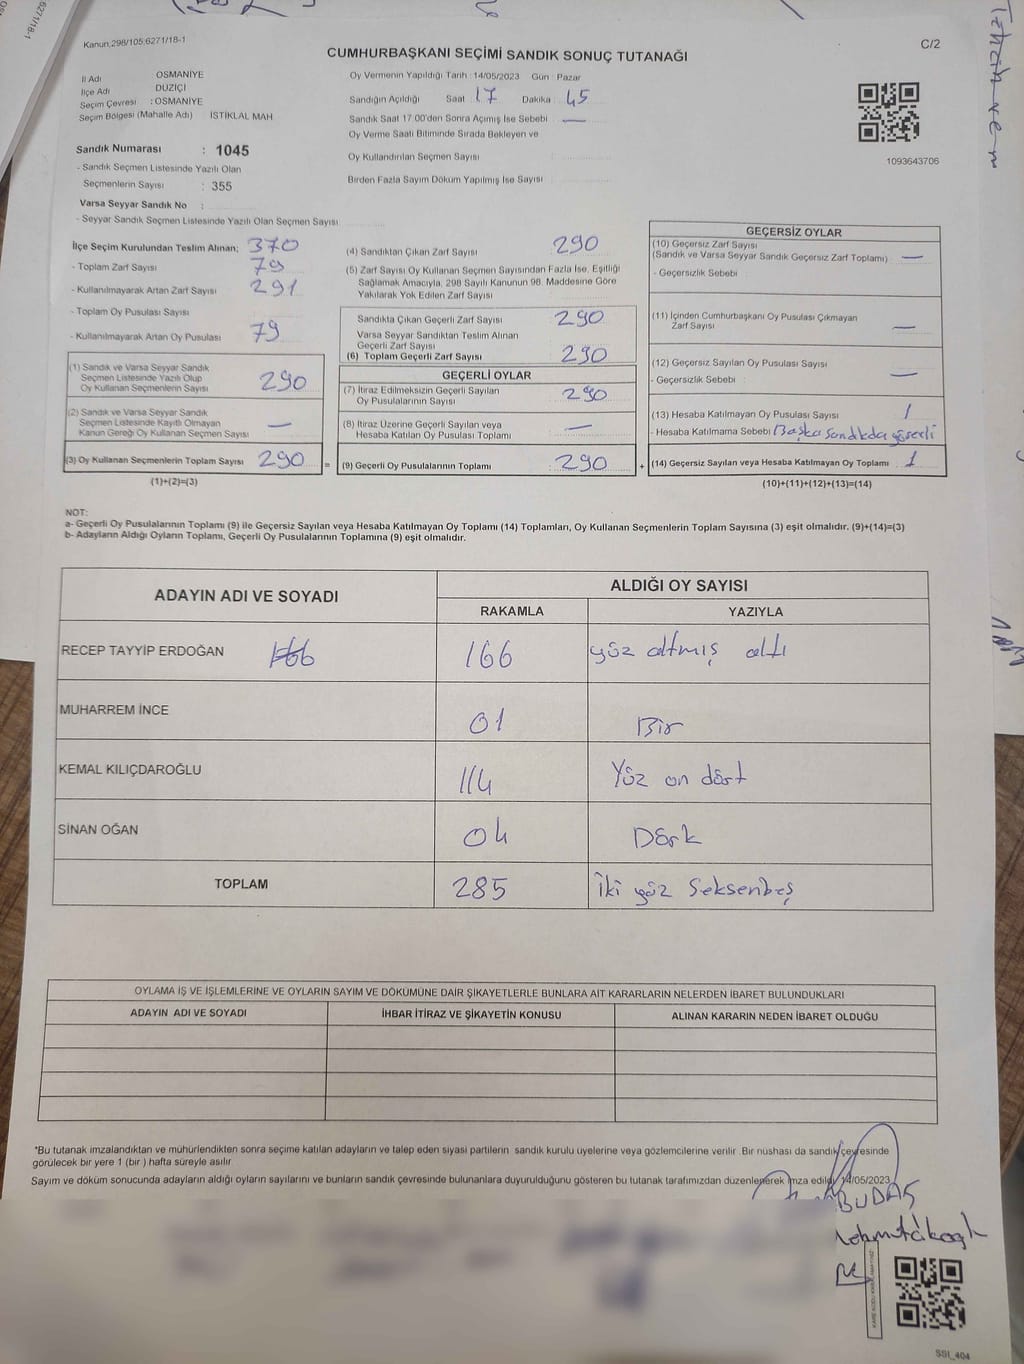 Kanun,298/105;6271/18-1
C/2
CUMHURBAŞKANI SEÇİMİ SANDIK SONUÇ TUTANAĞI
İl Adı OSMANİYE
İlçe Adı DÜZİÇİ
Seçim Çevresi : OSMANİYE
Seçim Bölgesi (Mahalle Adı) İSTİKLAL MAH
Sandık Numarası : 1045
- Sandık Seçmen Listesinde Yazılı Olan
Seçmenlerin Sayısı : 355
Varsa Seyyar Sandık No :
- Seyyar Sandık Seçmen Listesinde Yazılı Olan Seçmen Sayısı
Oy Vermenin Yapıldığı Tarih : 14/05/2023 Gün : Pazar
Sandığın Açıldığı Saat 17 Dakika 45
Sandık Saat 17:00'den Sonra Açımış İse Sebebi —
Oy Verme Saati Bitiminde Sırada Bekleyen ve
Oy Kullandırılan Seçmen Sayısı
Birden Fazla Sayım Döküm Yapılmış İse Sayısı
1093643706
İlçe Seçim Kurulundan Teslim Alınan; 370
- Toplam Zarf Sayısı 79
- Kullanılmayarak Artan Zarf Sayısı 291
- Toplam Oy Pusulası Sayısı
- Kullanılmayarak Artan Oy Pusulası 79
(1) Sandık ve Varsa Seyyar Sandık
Seçmen Listesinde Yazılı Olup
Oy Kullanan Seçmenlerin Sayısı 290
(2) Sandık ve Varsa Seyyar Sandık
Seçmen Listesinde Kayıtlı Olmayan
Kanun Gereği Oy Kullanan Seçmen Sayısı —
(3) Oy Kullanan Seçmenlerin Toplam Sayısı 290 =
(1)+(2)=(3)
(4) Sandıktan Çıkan Zarf Sayısı 290
(5) Zarf Sayısı Oy Kullanan Seçmen Sayısından Fazla İse, Eşitliği
Sağlamak Amacıyla, 298 Sayılı Kanunun 98. Maddesine Göre
Yakılarak Yok Edilen Zarf Sayısı
Sandıkta Çıkan Geçerli Zarf Sayısı 290
Varsa Seyyar Sandıktan Teslim Alınan
Geçerli Zarf Sayısı
(6) Toplam Geçerli Zarf Sayısı 290
GEÇERLİ OYLAR
(7) İtiraz Edilmeksizin Geçerli Sayılan
Oy Pusulalarının Sayısı 290
(8) İtiraz Üzerine Geçerli Sayılan veya
Hesaba Katılan Oy Pusulası Toplamı —
(9) Geçerli Oy Pusulalarının Toplamı : 290 +
GEÇERSİZ OYLAR
(10) Geçersiz Zarf Sayısı
(Sandık ve Varsa Seyyar Sandık Geçersiz Zarf Toplamı) —
- Geçersizlik Sebebi
(11) İçinden Cumhurbaşkanı Oy Pusulası Çıkmayan
Zarf Sayısı —
(12) Geçersiz Sayılan Oy Pusulası Sayısı
- Geçersizlik Sebebi : —
(13) Hesaba Katılmayan Oy Pusulası Sayısı 1
- Hesaba Katılmama Sebebi Başka sandıkda görevli
(14) Geçersiz Sayılan veya Hesaba Katılmayan Oy Toplamı 1
(10)+(11)+(12)+(13)=(14)
NOT:
a- Geçerli Oy Pusulalarının Toplamı (9) ile Geçersiz Sayılan veya Hesaba Katılmayan Oy Toplamı (14) Toplamları, Oy Kullanan Seçmenlerin Toplam Sayısına (3) eşit olmalıdır. (9)+(14)=(3)
b- Adayların Aldığı Oyların Toplamı, Geçerli Oy Pusulalarının Toplamına (9) eşit olmalıdır.
ADAYIN ADI VE SOYADI ALDIĞI OY SAYISI
RAKAMLA YAZIYLA
RECEP TAYYİP ERDOĞAN 166 166 yüz altmış altı
MUHARREM İNCE 01 Bir
KEMAL KILIÇDAROĞLU 114 Yüz on dört
SİNAN OĞAN 04 Dörk
TOPLAM 285 İki yüz Seksenbeş
OYLAMA İŞ VE İŞLEMLERİNE VE OYLARIN SAYIM VE DÖKÜMÜNE DAİR ŞİKAYETLERLE BUNLARA AİT KARARLARIN NELERDEN İBARET BULUNDUKLARI
ADAYIN ADI VE SOYADI İHBAR İTİRAZ VE ŞİKAYETİN KONUSU ALINAN KARARIN NEDEN İBARET OLDUĞU
*Bu tutanak imzalandıktan ve mühürlendikten sonra seçime katılan adayların ve talep eden siyasi partilerin sandık kurulu üyelerine veya gözlemcilerine verilir. Bir nüshası da sandık çevresinde
görülecek bir yere 1 (bir ) hafta süreyle asılır
Sayım ve döküm sonucunda adayların aldığı oyların sayılarını ve bunların sandık çevresinde bulunanlara duyurulduğunu gösteren bu tutanak tarafımızdan düzenlenerek imza edildi 14/05/2023
BUDAŞ
SSI_404